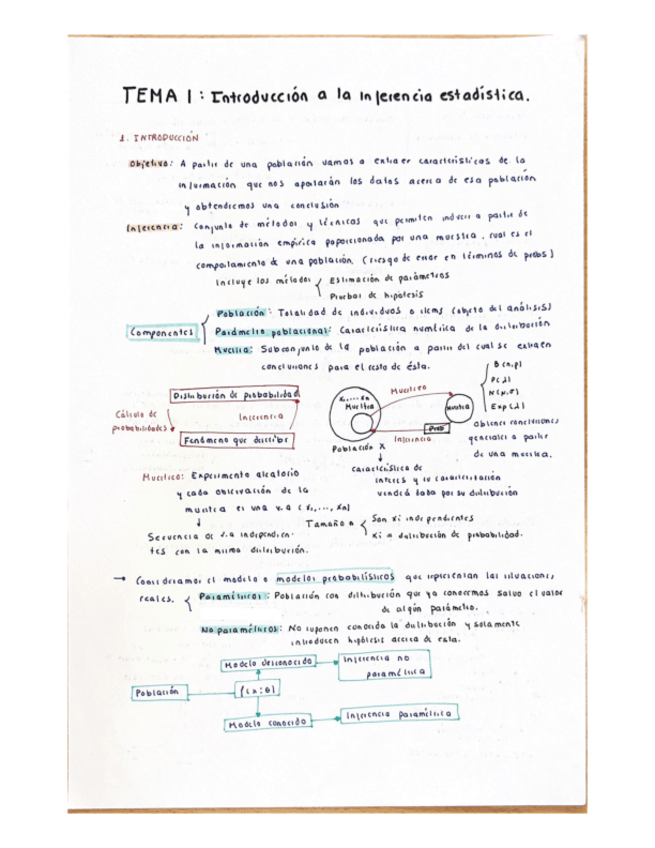 TEMA 1: Introducción a la inferencia estadística.
1. INTRODUCCIÓN
Objetivo: A partir de una población vamos a extraer características de la
información que nos aportarán los datos acerca de esa población
y obtendremos una conclusión
Inferencia: Conjunto de métodos y técnicas que permiten inducir a partir de
la información empírica poporcionada por una muestra, cual es el
comportamiento de una población. (riesgo de error en términos de probs)
Incluye los métodos
Estimación de parámetros
Pruebas de hipótesis
Componentes
Población: Totalidad de individuos o items (objeto del análisis)
Parámetro poblacional: Característica numérica de la distribución
Muestra: Subconjunto de la población a partir del cual se extraen
conclusiones para el resto de ésta.
Distribución de probabilidad
Cálculo de
probabilidades
Inferencia
Fenómeno que describe
x1,...,xn
Muestra
Muestreo
Muestra
Prob
Inferencia
Población X
B(n,p)
P(λ)
N(μ,σ)
Exp(λ)
Obtener conclusiones
generales a partir
de una muestra.
característica de
interés y su caracterización
vendrá dada por su distribución
Muestreo: Experimento aleatorio
y cada observación de la
muestra es una v.a (x1,...,xn)
Secuencia de v.a independien-
tes con la misma distribución.
Tamaño n
Son xi independientes
xi = distribución de probabilidad.
→ Consideramos el modelo o modelos probabilísticos que representan las situaciones
reales.
Paramétricos: Población con distribución que ya conocemos salvo el valor
de algún parámetro.
No paramétricos: No suponen conocida la distribución y solamente
introducen hipótesis acerca de esta.
Modelo desconocido
Inferencia no
paramétrica
Población
f(x;θ)
Modelo conocido
Inferencia paramétrica